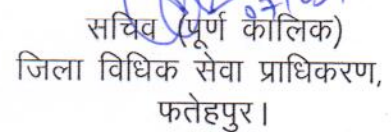 सचिव (पूर्ण कालिक)
जिला विधिक सेवा प्राधिकरण,
फतेहपुर।